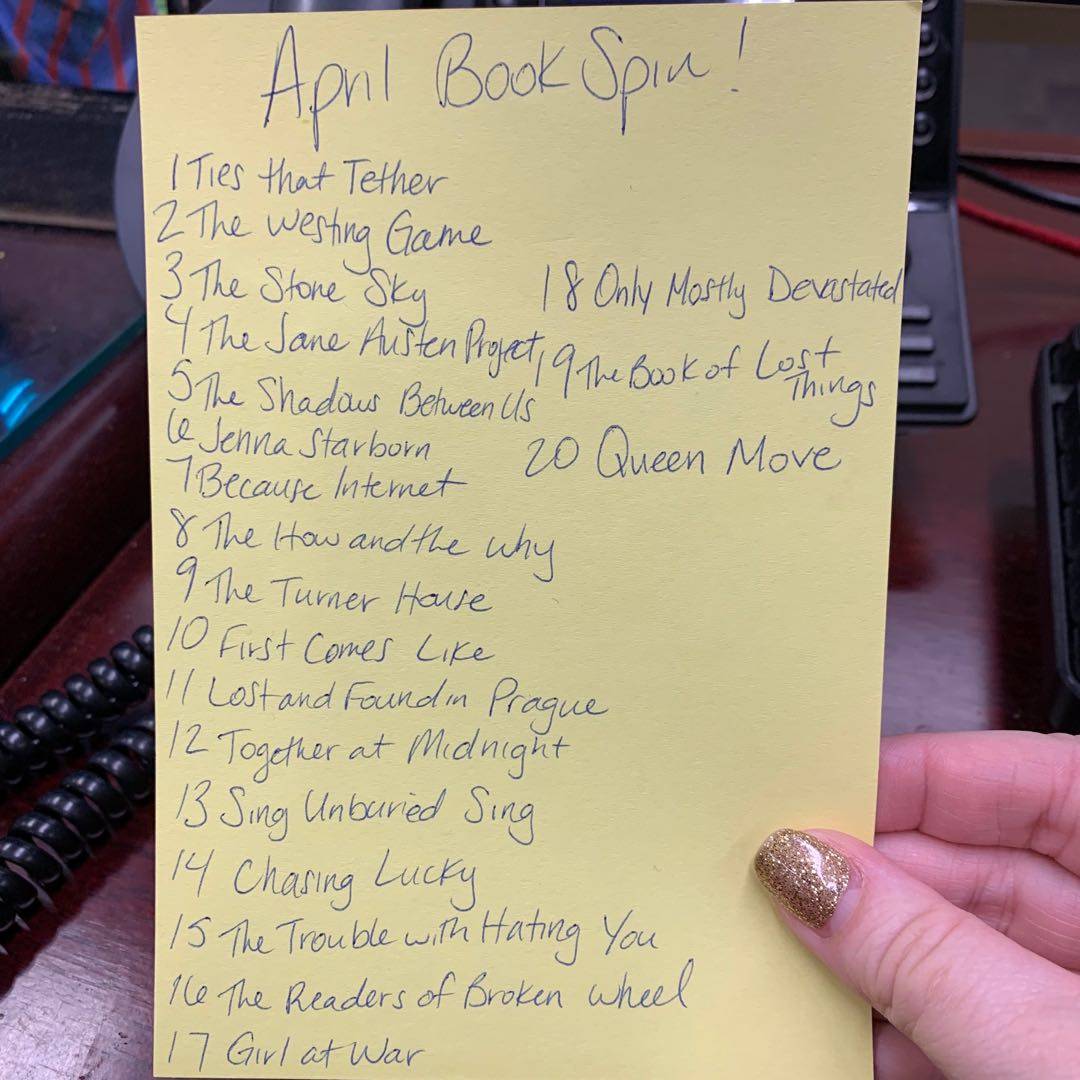 April Book Spin!
1 Ties that Tether
2 The Westing Game
3 The Stone Sky
4 The Jane Austen Project
5 The Shadows Between Us
6 Jenna Starborn
7 Because Internet
8 The How and the Why
9 The Turner House
10 First Comes Like
11 Lost and Found in Prague
12 Together at Midnight
13 Sing Unburied Sing
14 Chasing Lucky
15 The Trouble with Hating You
16 The Readers of Broken Wheel
17 Girl at War
18 Only Mostly Devastated
19 The Book of Lost
Things
20 Queen Move